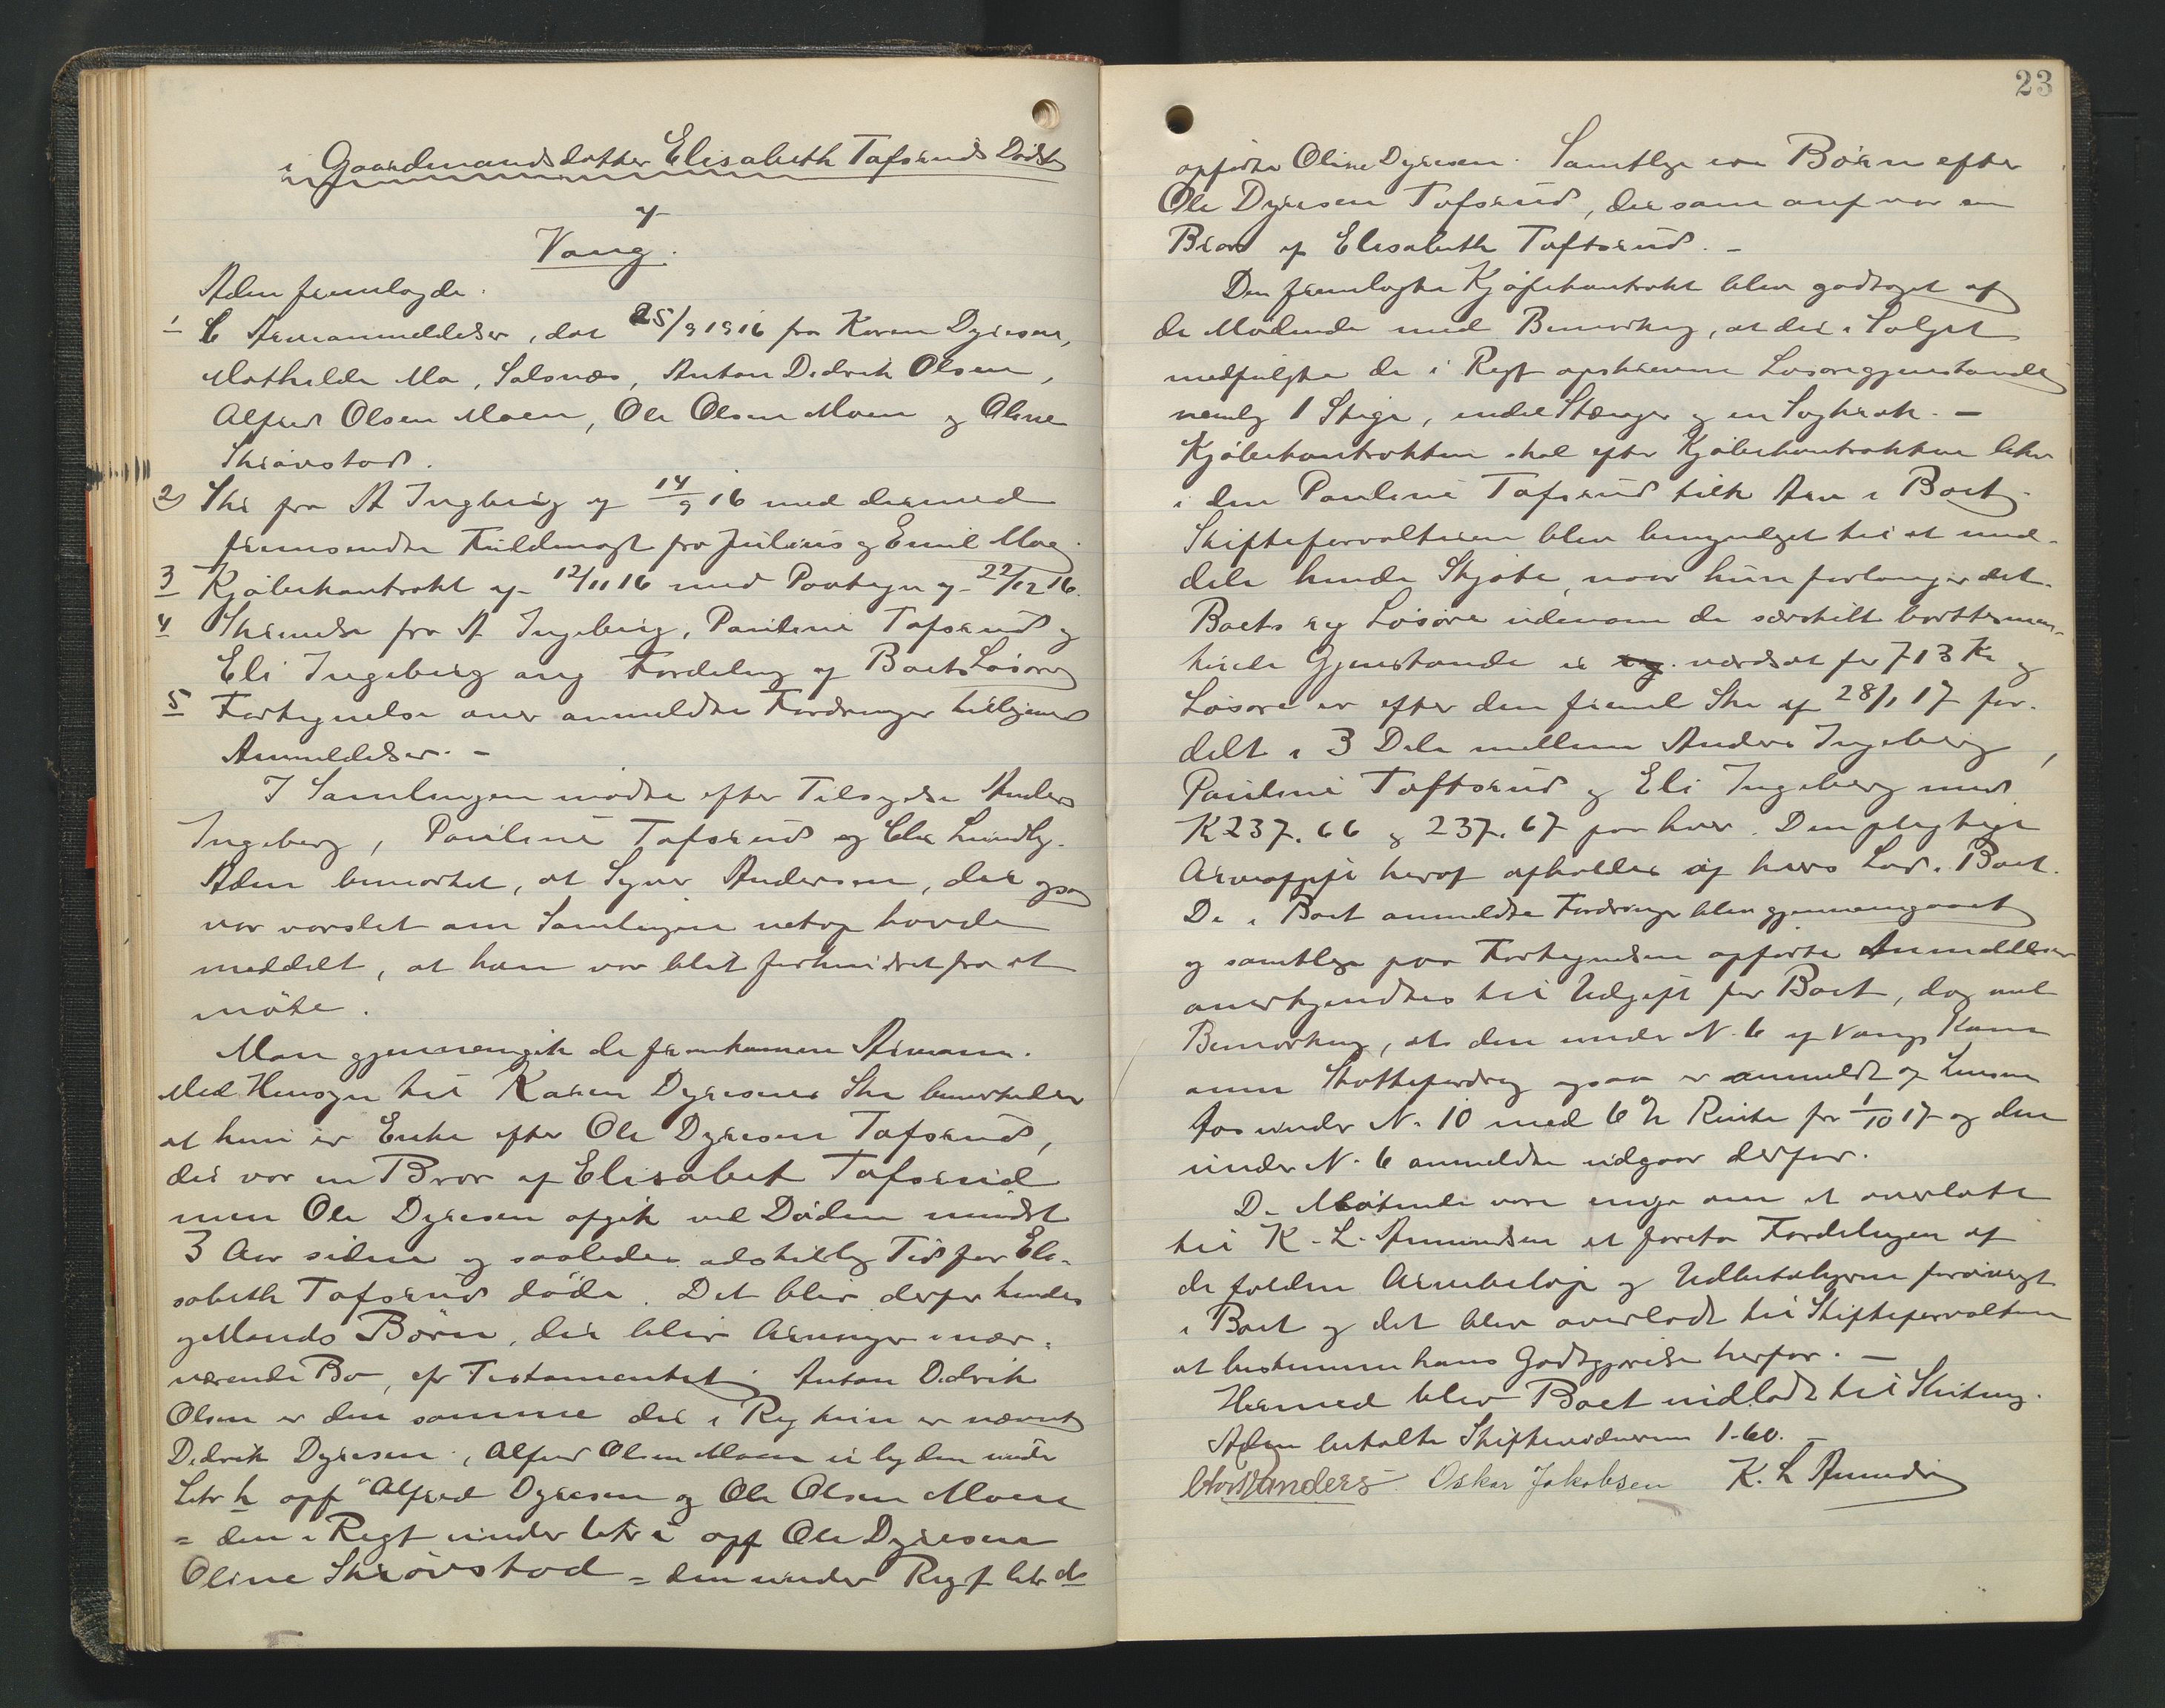 i Gaardmandsdatter Elisabeth Tafsruds Dødsbo
af
Vang.
Aden fremlagde.
1 6 Arveanmeldelser, dat 25/9 1916 fra Karen Dyresen,
Mathilde Mo, Salsnæs, Anton Didrik Olsen,
Alfred Olsen Moen, Ole Olsen Moen og Oline
Skrøvstad.
2) Skr fra A Ingberg af 14/9 16 med dermed
fremsendte Fuldmagt fra Julius og Emil Moe
3 Kjøbekontrakt af 12/11 16 med Paategn af 22/12 16.
4 Skrivelse fra A Ingeberg, Pauline Tafsrud og
Eli Ingeberg ang Fordeling af Boets Løsøre
5 Fortegnelse over anmeldte Fordringer tilligemed
Anmeldelser. -
I Samlingen mødte efter Tilsigelse Anders
Ingeberg, Pauline Tafsrud og Lundby.
Aden bemærket, at Syver Andersen, der ogsaa
var varslet om Samlingen netop havde
meddelt, at han var blit forhindret fra at
møte.
Man gjennemgik de fremkomne Arveanm.
Med Hensyn til Karen Dyresens Skr bemerkedes
at hun er Enke efter Ole Dyresen Tafsrud,
der var en Bror af Elisabet Tafsrud
men Ole Dyresen afgik ved Døden mindst
3 Aar siden og saaledes adskillig Tid før Eli-
sabeth Tafsrud døde. Det blir derfor hendes
og Mands Børn, der blir Arvinger i nær-
værende Bo, efr Testamentet. Anton Didrik
Olsen er den samme der i Reg hvin er nævnt
Didrik Dyresen, Alfred Olsen Moen er lig den under
Litr h opf Alfred Dyresen og Ole Olsen Moen
= den i Regf under litr i opf Ole Dyresen
Oline Skrøvstad = den under Regf litr d
23
opførte Oline Dyresen. Samtlige ere Børn efter
Ole Dyresen Tafsrud, der som anf var en
Bror af Elisabeth Taftsrud. -
Den fremlagte Kjøbekontrakt blev godtaget af
de Mødende med Bemerkng, at der i Salget
medfulgte de i Regf opskrevne Løsøregjenstande
nemlig 1 Stige, endel Stænger og en
Kjøbekontrakten skal efter Kjøbekontrakten
i den Pauline Tafsrud tilk Arv i Boet.
Skifteforvalteren blev bemyndiget til at med-
dele hende Skjøte, naar hun forlanger det.
Boets reg Løsøre udenom de særskilt
Gjenstande er værdsat for 713 Kr og
Løsøre er efter den freml Skr af 28/1 17 for-
delt i 3 Dele mellem Anders Ingeberg,
Pauline Taftsrud og Eli Ingeberg med
Kr 237.66 og 237.67 paa hver. Den pligtige
Arveafgift herav afholdes af hvers Lod i Boet.
De i Boet anmeldte Fordringer blev gjennemgaaet
og samtlige paa Fortegnelsen opførte Anmeldelser
anerkjendtes til Udgift for Boet, dog med
Bemerkng, at den under N. 6 af Vangs Kom
anm Skattefordrng ogsaa er anmeldt af Lensm
under N. 10 med 6 % Rente fra 1/10 17 og den
under N. 6 anmeldte udgaar derfor.
De Møtende vare enige om at overlate
til K. L. Amundsen at foreta Fordelingen af
de Arvebeløp og Udbetalingerne forøvrigt
i Boet og det blev overladt til Skifteforvalteren
at bestemme hans Godtgjørelse herfor. -
Hermed blev Boet indladt til Slutning.
Aden betalte Skiftevidnerne 1.60. -
Oskar Jakobsen K. L Amundsen